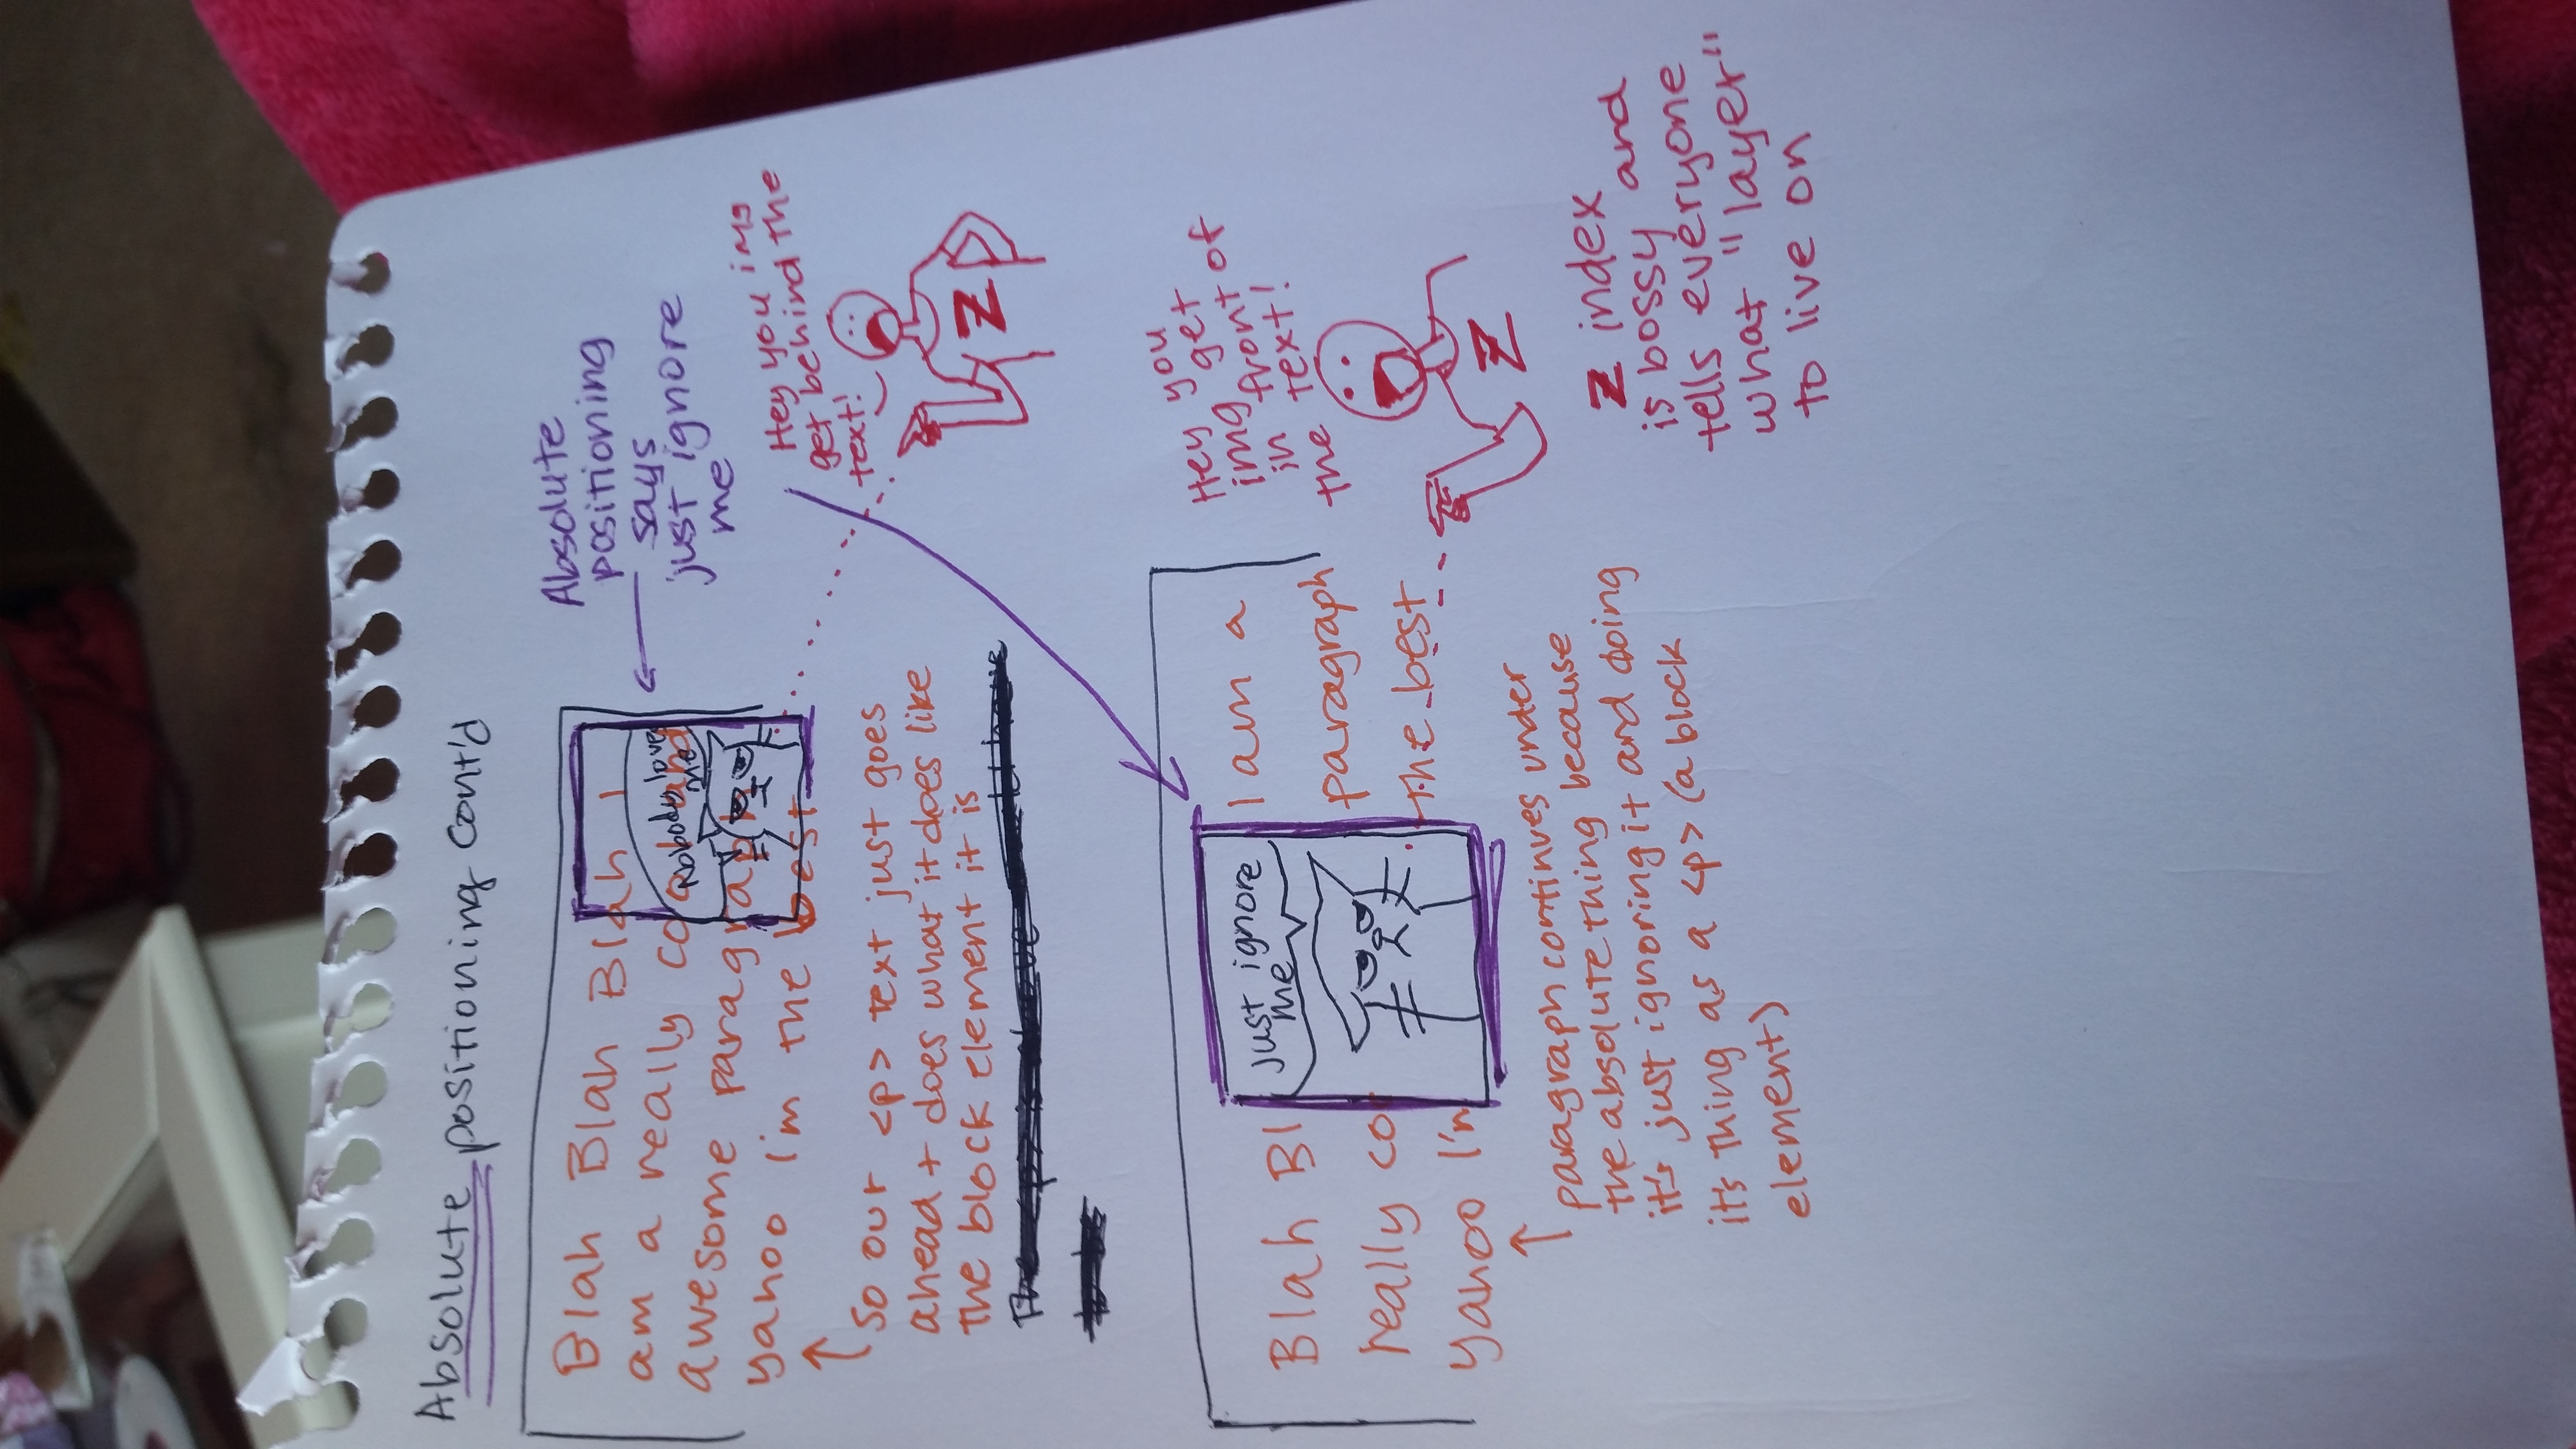 Absolute positioning cont'd
Blah Blah Blah I
am a really cool and
awesome paragraph
yahoo I'm the best
Nobody loves
me
Absolute
positioning
says
just ignore
me
Hey you img
get behind the
text!
Z
So our <p> text just goes
ahead + does what it does like
the block element it is
Blah Bl
I am a
really co
paragraph
yahoo I'm
the best
Just ignore
me
Hey you
img get
in front of
the text!
Z
paragraph continues under
the absolute thing because
it's just ignoring it and doing
it's thing as a <p> (a block
element)
Z index
is bossy and
tells everyone
what "layer"
to live on